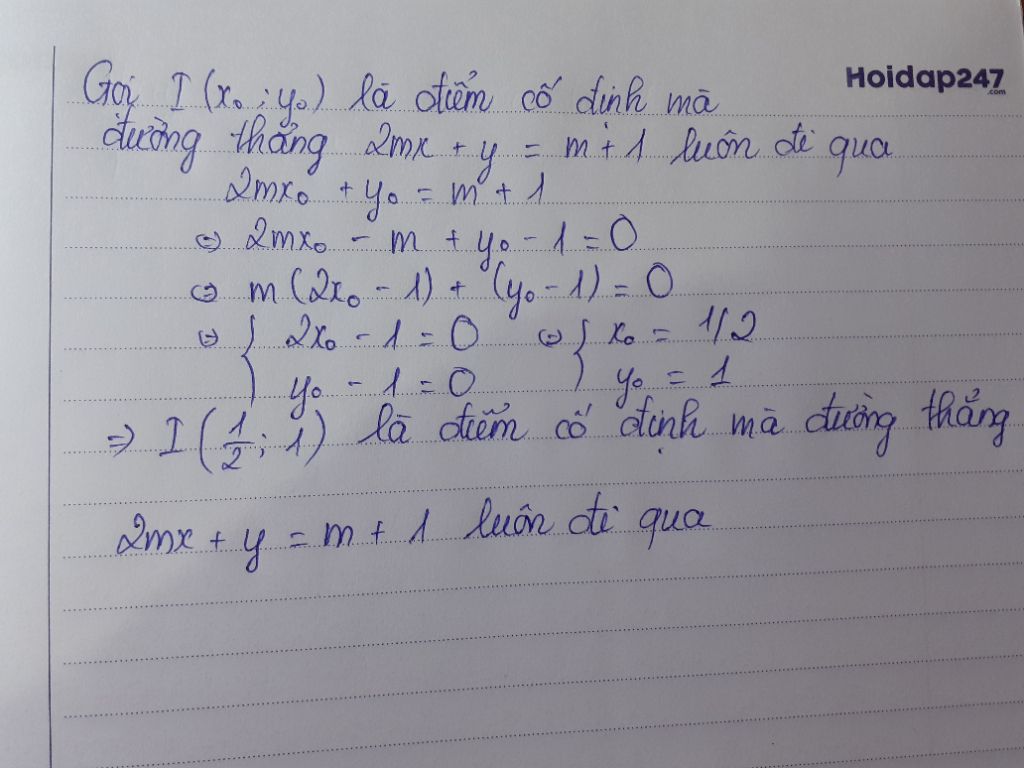 Gọi I (x₀ ; y₀) là điểm cố định mà
Hoidap247
.com
đường thẳng 2mx + y = m + 1 luôn đi qua
2mx₀ + y₀ = m + 1
⇔ 2mx₀ - m + y₀ - 1 = 0
⇔ m (2x₀ - 1) + (y₀ - 1) = 0
⇔ { 2x₀ - 1 = 0 ⇔ { x₀ = 1/2
y₀ - 1 = 0 y₀ = 1
⇒ I (1/2 ; 1) là điểm cố định mà đường thẳng
2mx + y = m + 1 luôn đi qua